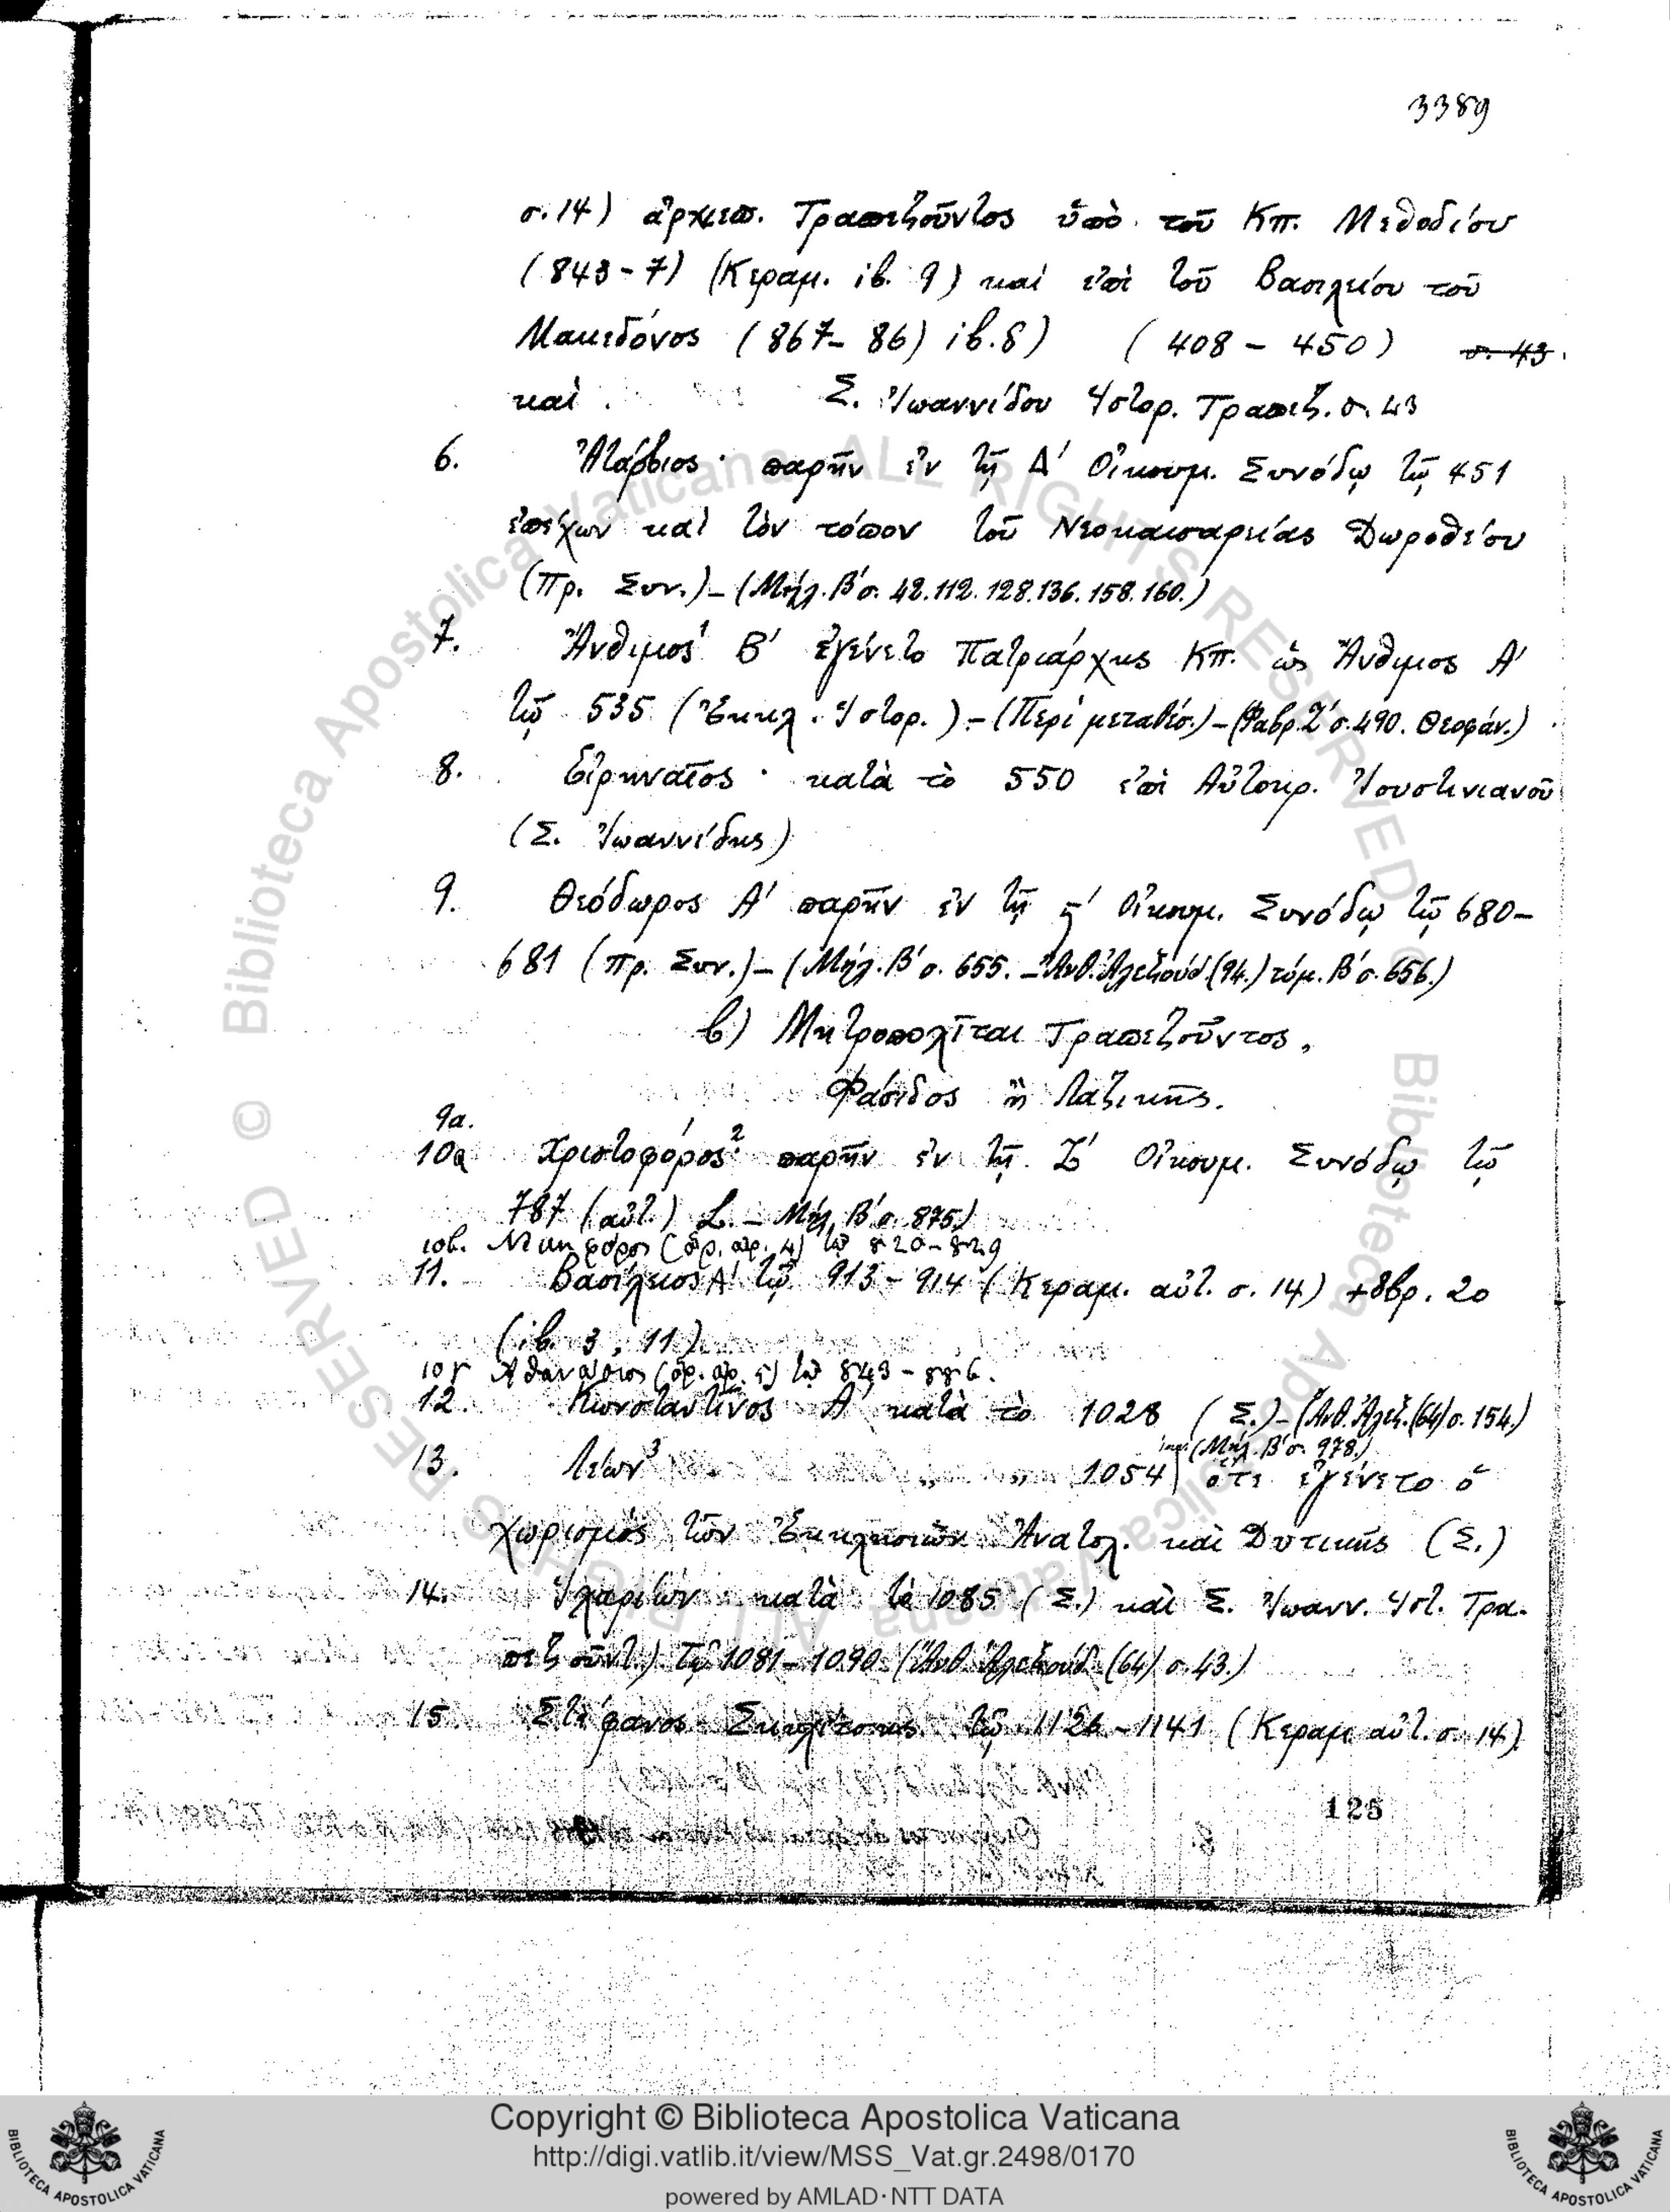 3389
σ. 14) ἀρχιεπ. Τραπεζοῦντος ὑπὸ τοῦ Κπ. Μεθοδίου
(843-7) (Κεραμ. ἰβ. 9) καὶ ἐπὶ τοῦ Βασιλείου τοῦ
Μακεδόνος (867-86) ἰβ. 8) (408 - 450) σ. 43.
καὶ Σ. Ἰωαννίδου Ἱστορ. Τραπεζ. σ. 43
6. Ἀτάρβιος· παρῆν ἐν τῇ Δ' Οἰκουμ. Συνόδῳ τῷ 451
ἐπέχων καὶ τὸν τόπον τοῦ Νεοκαισαρείας Δωροθέου
(Πρ. Συν.) - (Μήλ. Β' σ. 42. 112. 128. 136. 158. 160.)
7. Ἄνθιμος¹ Β' ἐγένετο Πατριάρχης Κπ. ὡς Ἄνθιμος Α'
τῷ 535 (Ἐκκλ. Ἱστορ.) - (Περὶ μεταθέσ.) - (Φαβρ. Ζ' σ. 490. Θεοφάν.)
8. Εἰρηναῖος· κατὰ τὸ 550 ἐπὶ Αὐτοκρ. Ἰουστινιανοῦ
(Σ. Ἰωαννίδης)
9. Θεόδωρος Α' παρῆν ἐν τῇ ς' Οἰκουμ. Συνόδῳ τῷ 680-
681 (πρ. Συν.) - (Μήλ. Β' σ. 655. - Ἀνθ. Ἀλεξούδ. (94.) τόμ. Β' σ. 656.)
β) Μητροπολῖται Τραπεζοῦντος,
Φάσιδος ἢ Λαζικῆς.
9α.
10α Χριστοφόρος² παρῆν ἐν τῇ Ζ' Οἰκουμ. Συνόδῳ τῷ
787 (αὐτ.) L. - Μήλ. Β' σ. 875.)
10β. Νικηφόρος (ὅρ. ἀρ. 4) τῷ 820-829
11. Βασίλειος Α' τῷ 913-914 (Κεραμ. αὐτ. σ. 14) +8βρ. 20
(ἰβ. 3, 11)
10γ Ἀθανάσιος (ὅρ. ἀρ. 5) τῷ 843-886.
12. Κωνσταντῖνος Α' κατὰ τὸ 1028 (Σ.) - (Ἀνθ. Ἀλεξ. (64) σ. 154.)
(Μήλ. Β' σ. 978.)
13. Λέων³ „ „ 1054 ὅτε ἐγένετο ὁ
χωρισμὸς τῶν Ἐκκλησιῶν Ἀνατολ. καὶ Δυτικῆς (Σ.)
14. Ἱλαρίων κατὰ τὸ 1085 (Σ.) καὶ Σ. Ἰωανν. Ἱστ. Τρα-
πεζοῦντ.) τῷ 1081-1090 (Ἀνθ. Ἀλεξούδ. (64) σ. 43.)
15. Στέφανος Σκυλίτσης τῷ 1126-1141 (Κεραμ. αὐτ. σ. 14)
125
© Biblioteca Apostolica Vaticana ALL RIGHTS RESERVED
Copyright © Biblioteca Apostolica Vaticana
http://digi.vatlib.it/view/MSS_Vat.gr.2498/0170
powered by AMLAD·NTT DATA
BIBLIOTECA APOSTOLICA VATICANA
BIBLIOTECA APOSTOLICA VATICANA